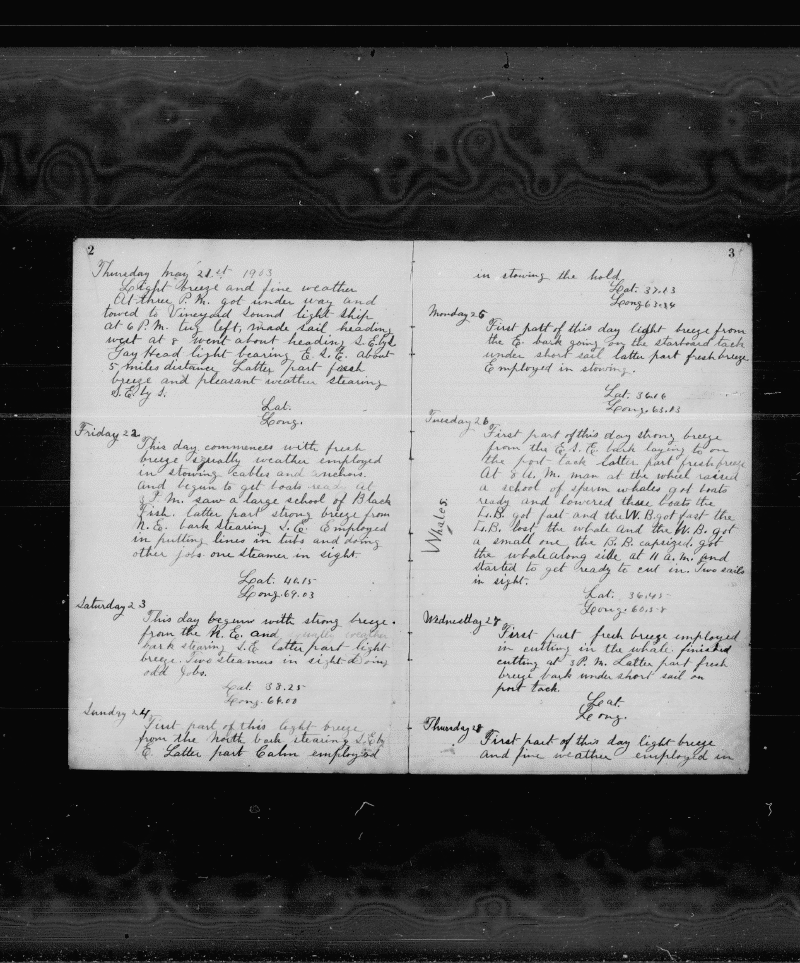 2
Thursday May 21st 1903
Light breeze and fine weather
At three P.M. got under way and
towed to Vineyard Sound light ship
at 6 P.M. tug left, made sail heading
west at 8 went about heading S.E.by S.
Gay Head light bearing E.S.E. about
5 miles distance Latter part fresh
breeze and pleasant weather stearing
S.E. by S.
Lat.
Long.
Friday 22
This day commences with fresh
breeze squally weather employed
in stowing cables and anchors.
And begun to get boats ready at
P.M. saw a large school of Black
Fish. latter part strong breeze from
N.E. bark stearing S.E. Employed
in putting lines in tubs and doing
other jobs. one steamer in sight.
Lat. 40.15
Long. 69.03
Saturday 23
This day beguns with strong breeze.
from the N.E. and squally weather
bark stearing S.E. latter part light
breeze. Two steamers in sight doing
odd Jobs.
Lat. 38.25
Long. 64.00
Sunday 24
First part of this light breeze
from the North bark stearing S.E. by
E. Latter part Calm employed
3
in stowing the hold.
Lat. 37.13
Long. 63.34
Monday 25
First part of this day light breeze from
the E. bark going on the starboard tack
under short sail latter part fresh breeze
Employed in stowing.
Lat. 36.16
Long. 63.13
Tuesday 26
First part of this day strong breeze
from the E.S.E. bark laying to on
the port tack latter part fresh breeze
At 8 A.M. man at the wheel raised
a school of sperm whales got boats
ready and lowered three boats the
L.B. got fast and the W.B. got fast the
L.B. lost the whale and the W.B. got
a small one, the B.B. capzized. got
the whale along side at 11 a.m. and
started to get ready to cut in. Two sails
in sight.
Whales.
Lat. 36.45
Long. 60.58
Wednesday 27
First part fresh breeze employed
in cutting in the whale. finished
cutting at 3 P.M. Latter part fresh
breeze bark under short sail on
port tack.
Lat.
Long.
Thursday 28
First part of this day light breeze
and fine weather employed in